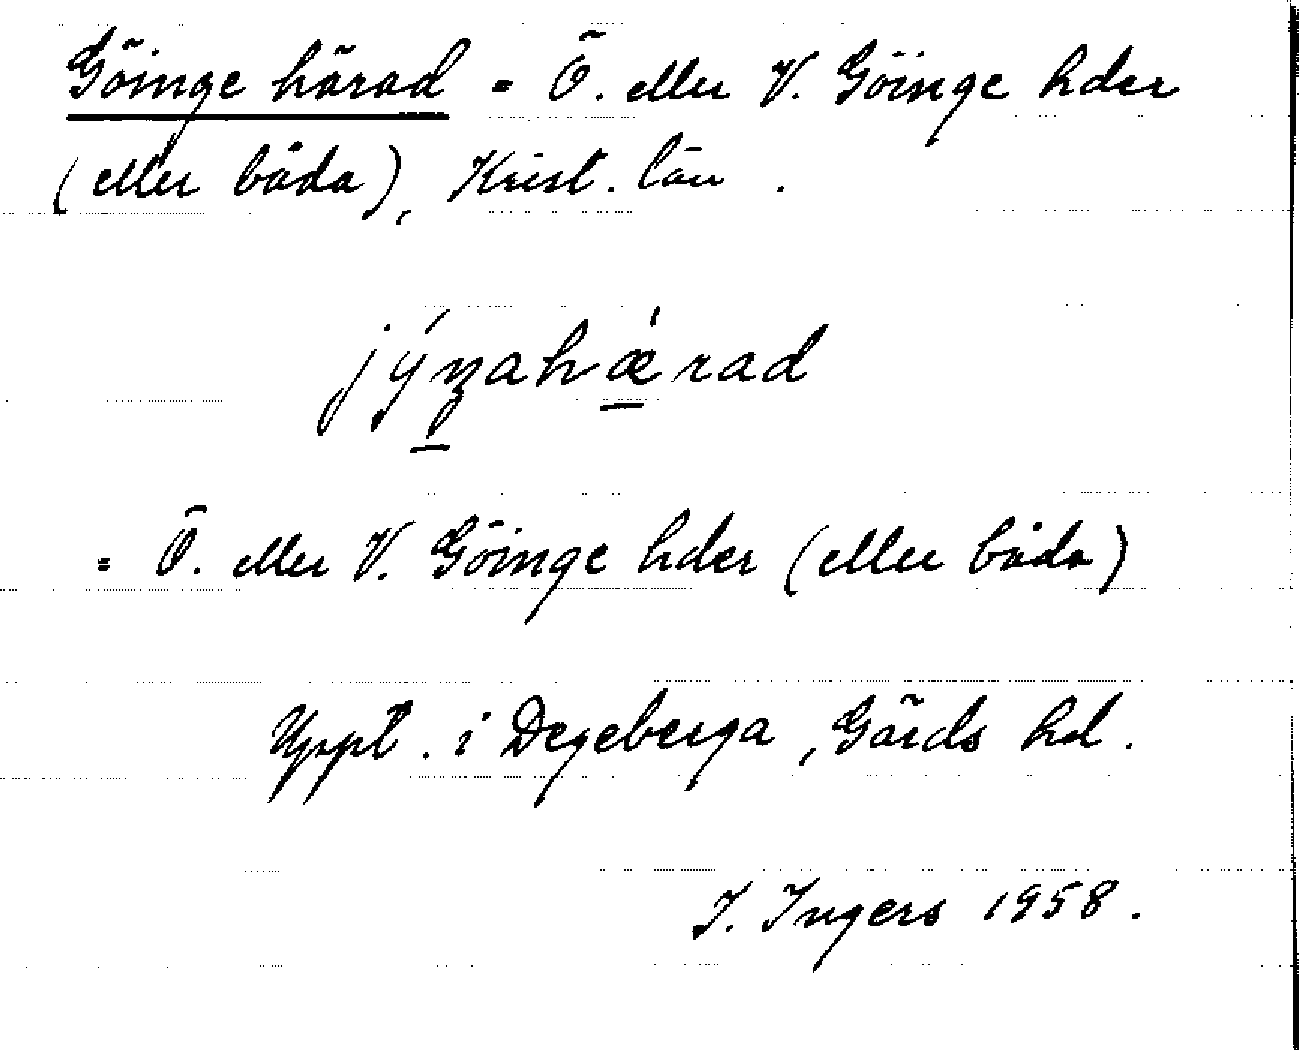 Göinge härad = Ö. eller V. Göinge hder
(eller båda), Krist. län.
jýŋahǽrad
= Ö. eller V. Göinge hder (eller båda)
Uppt. i Degeberga, Gärds hd.
I. Ingers 1958.